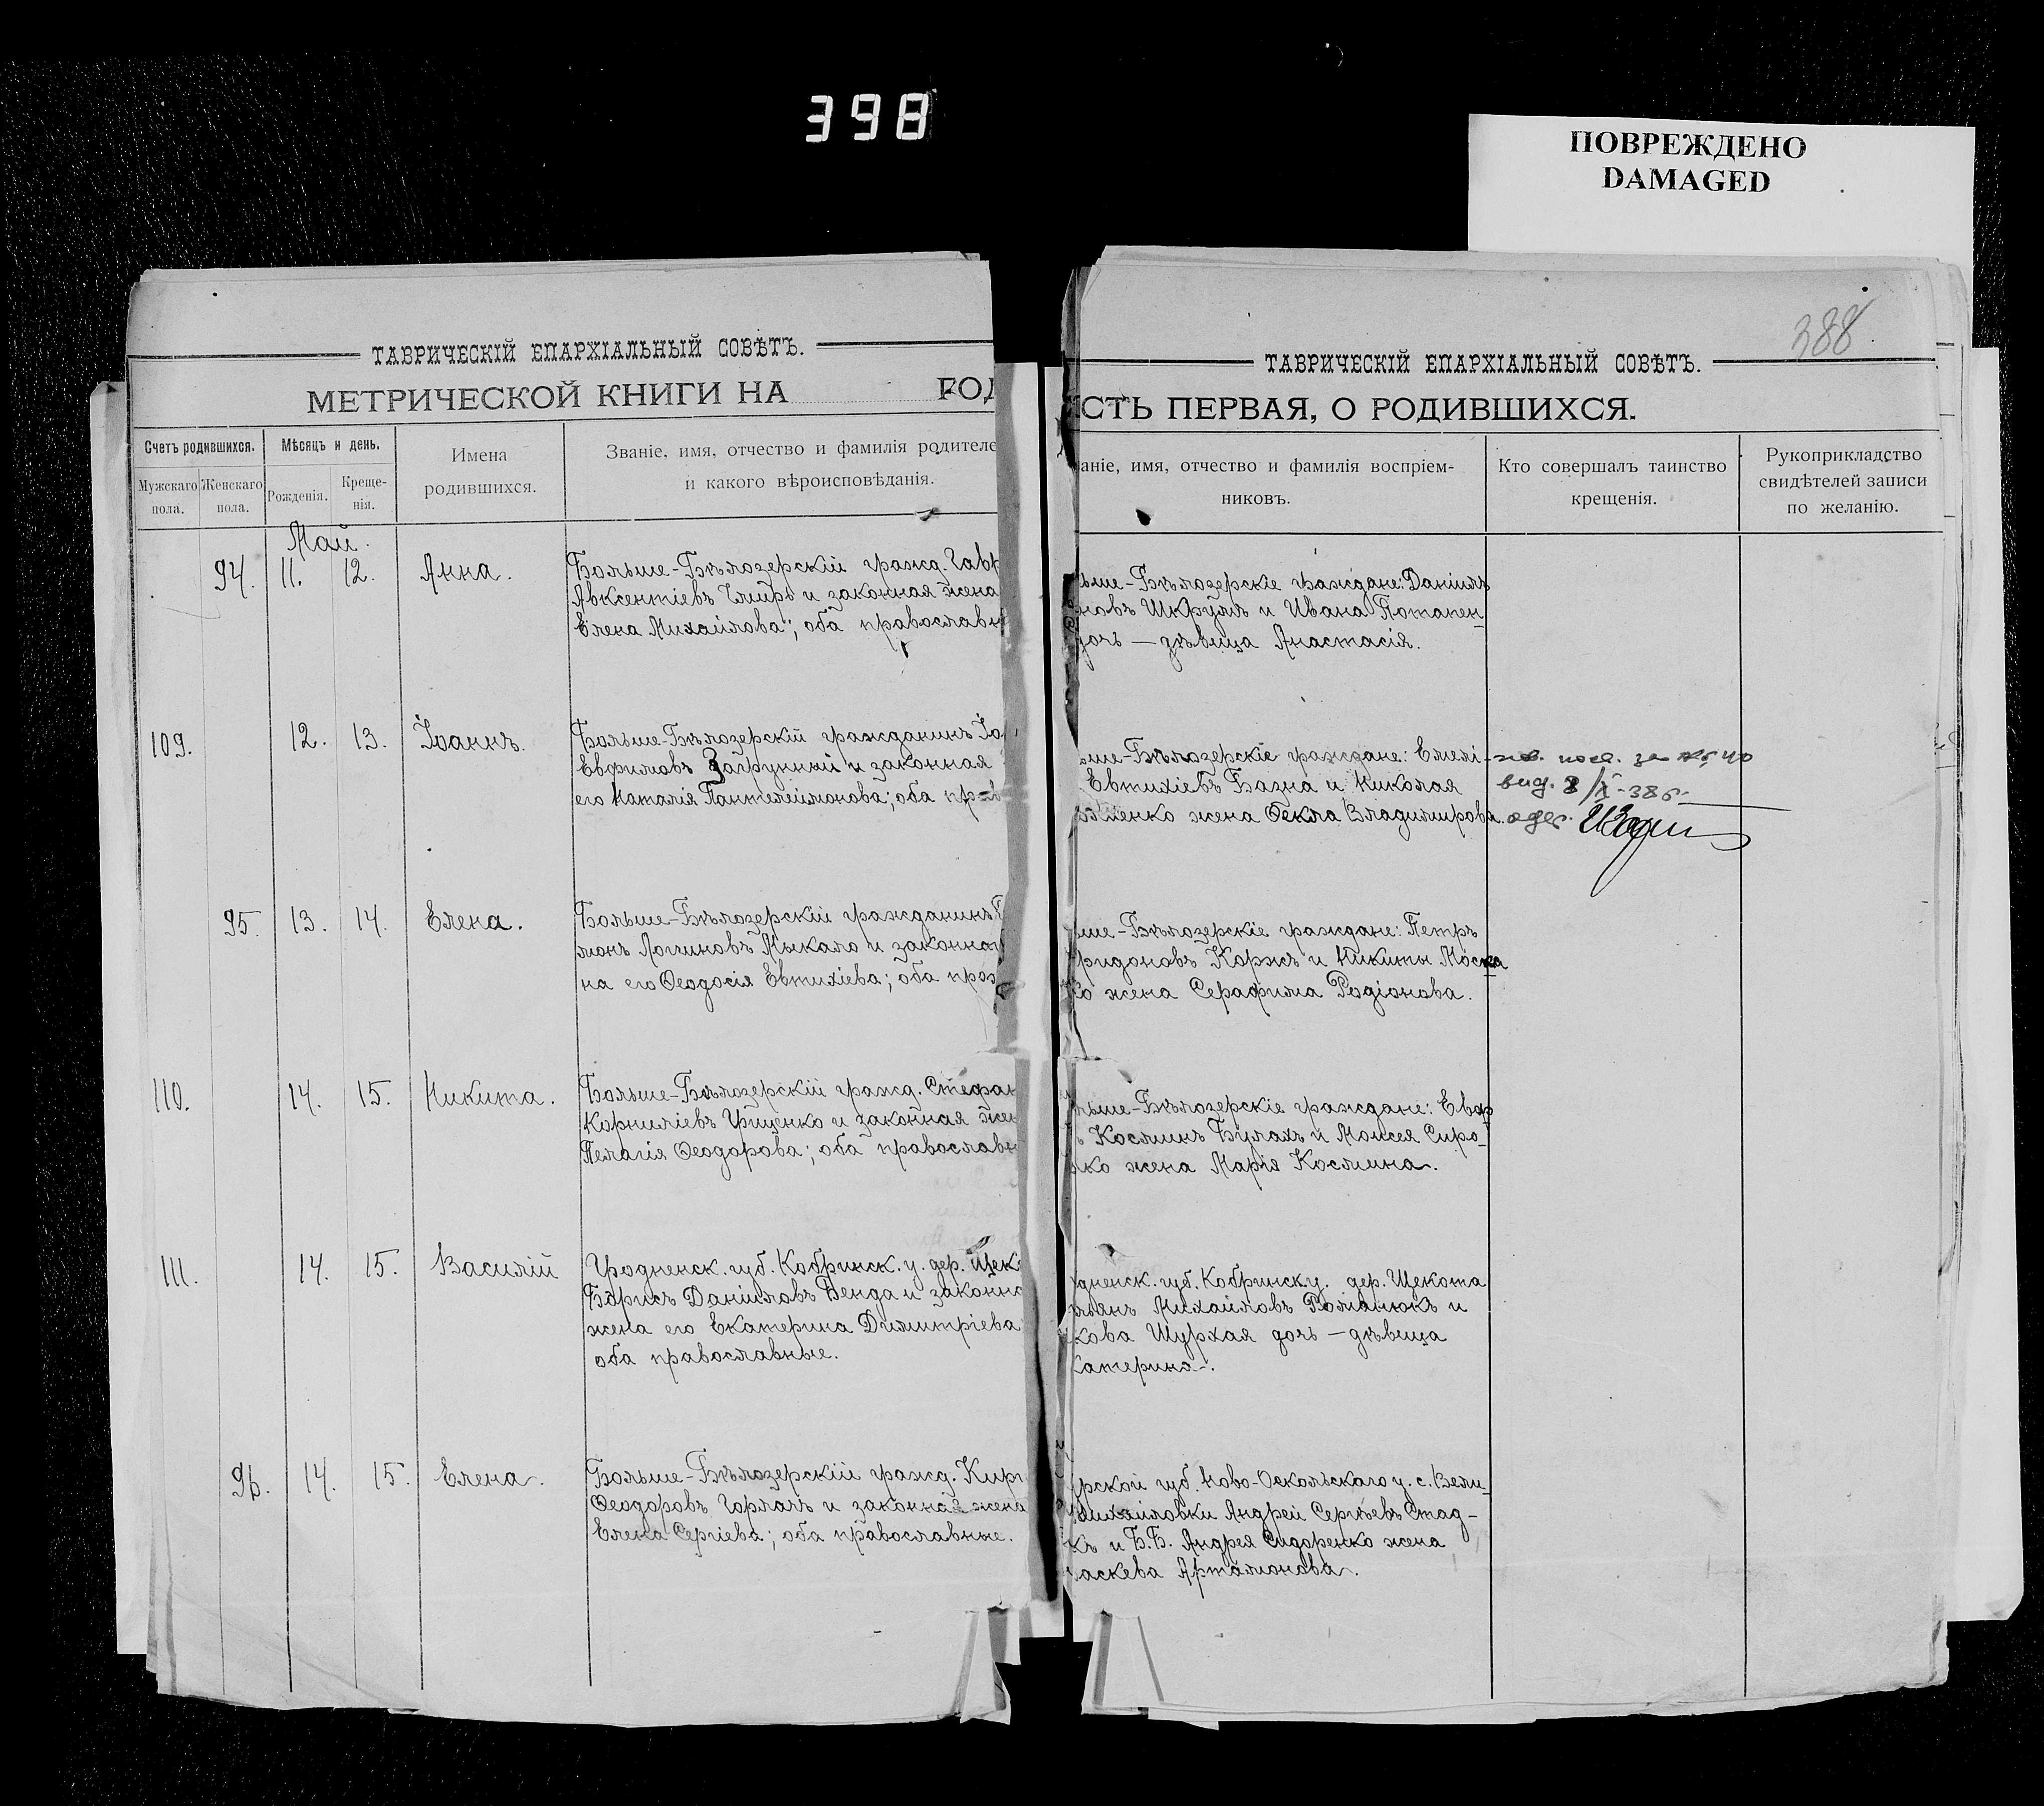 398
ПОВРЕЖДЕНО
DAMAGED
388
ТАВРИЧЕСКІЙ ЕПАРХІАЛЬНЫЙ СОВѢТЪ.
МЕТРИЧЕСКОЙ КНИГИ НА ГОД
Счетъ родившихся.
Мѣсяцъ и день.
Имена
родившихся.
Званіе, имя, отчество и фамилія родителе
и какого вѣроисповѣданія.
Мужскаго
пола.
Женскаго
пола.
Рожденія.
Креще-
нія.
Май.
94. 11. 12. Анна.
Больше-Бѣлозерскій гражд. Гавр
Авксентіевъ и законная жена
Елена Михайлова; оба православн
109. 12. 13. Іоаннъ.
Больше-Бѣлозерскій гражданинъ Іо
Евфимовъ Загрунный и законная
его Наталія Пантелеимонова; оба пра
95. 13. 14. Елена.
Больше-Бѣлозерскій гражданинъ
монъ Логиновъ Мыкало и законная
на его Ѳеодосія Евтихіева; оба прав
110. 14. 15. Никита.
Больше-Бѣлозерскій гражд. Стефан
Корниліевъ Гриценко и законная жен
Пелагія Ѳеодорова; оба православн
111. 14. 15. Василій
Гродненск. губ. Кобринск. у. дер. Щек
Борисъ Даніиловъ Венда и законна
жена его Екатерина Димитріева
оба православные.
96. 14. 15. Елена.
Больше-Бѣлозерскій гражд. Кири
Ѳеодоровъ Горлачъ и законная жена
Елена Сергіева; оба православные.
ТАВРИЧЕСКІЙ ЕПАРХІАЛЬНЫЙ СОВѢТЪ.
СТЬ ПЕРВАЯ, О РОДИВШИХСЯ.
аніе, имя, отчество и фамилія воспріем-
никовъ.
Кто совершалъ таинство
крещенія.
Рукоприкладство
свидѣтелей записи
по желанію.
ьше-Бѣлозерскіе граждане: Даніилъ
новъ Шкруль и Ивана Потапен-
дочь — дѣвица Анастасія.
ше-Бѣлозерскіе граждане: Емелі-
Евтихіевъ Базна и Николая
енко жена Ѳекла Владимірова.
ше-Бѣлозерскіе граждане: Петръ
ридоновъ Коржъ и Никиты Моска
ко жена Серафима Родіонова.
ьше-Бѣлозерскіе граждане: Евф
Косминъ Булахъ и Моисея Сиро-
ко жена Марія Космина.
дненск. губ. Кобринск. у. дер. Щекота
ьянъ Михайловъ Романюкъ и
кова Шурхая дочь — дѣвица
катерина.
рской губ. Ново-Оскольскаго у. с. Вели-
михайловки Андрей Сергѣевъ Стад-
къ и Б.Б. Андрея Сидоренко жена
аскева Артамонова.